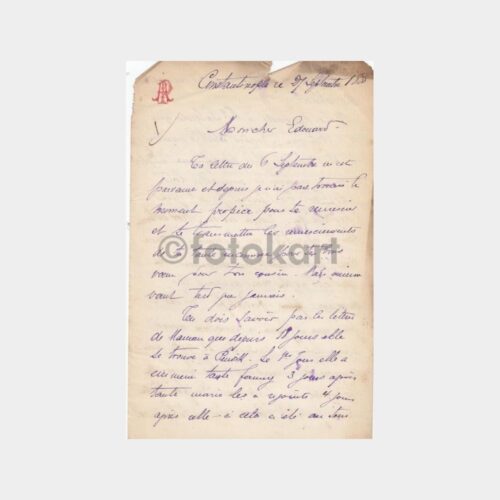 AR
Constantinople ce 27 Septembre
1/
Mon cher Edouard.
Ta lettre du 6 Septembre m'est
parvenue et depuis je n'ai pas trouvé le
moment propice pour te remercier
et te transmettre les remerciements
de la tante
©fotokart
vœux pour ton cousin. Mais mieux
vaut tard que jamais.
Tu dois savoir par la lettre
de Maman que depuis 18 jours elle
se trouve à. Le 1er jour elle a
emmené tante Fanny 3 jours après
tante Marie les a rejoints 4 jours
après celle-ci cela a été au tour